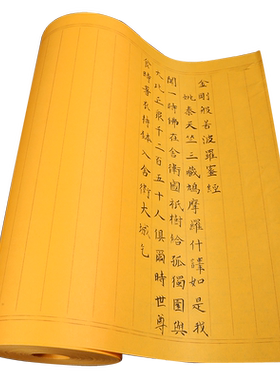 金剛般若波羅蜜經
姚秦天竺三藏鳩摩羅什譯如是我
聞一時佛在舍衛國祇樹給孤獨園與
大比丘眾千二百五十人俱爾時世尊
食時著衣持鉢入舍衛大城乞